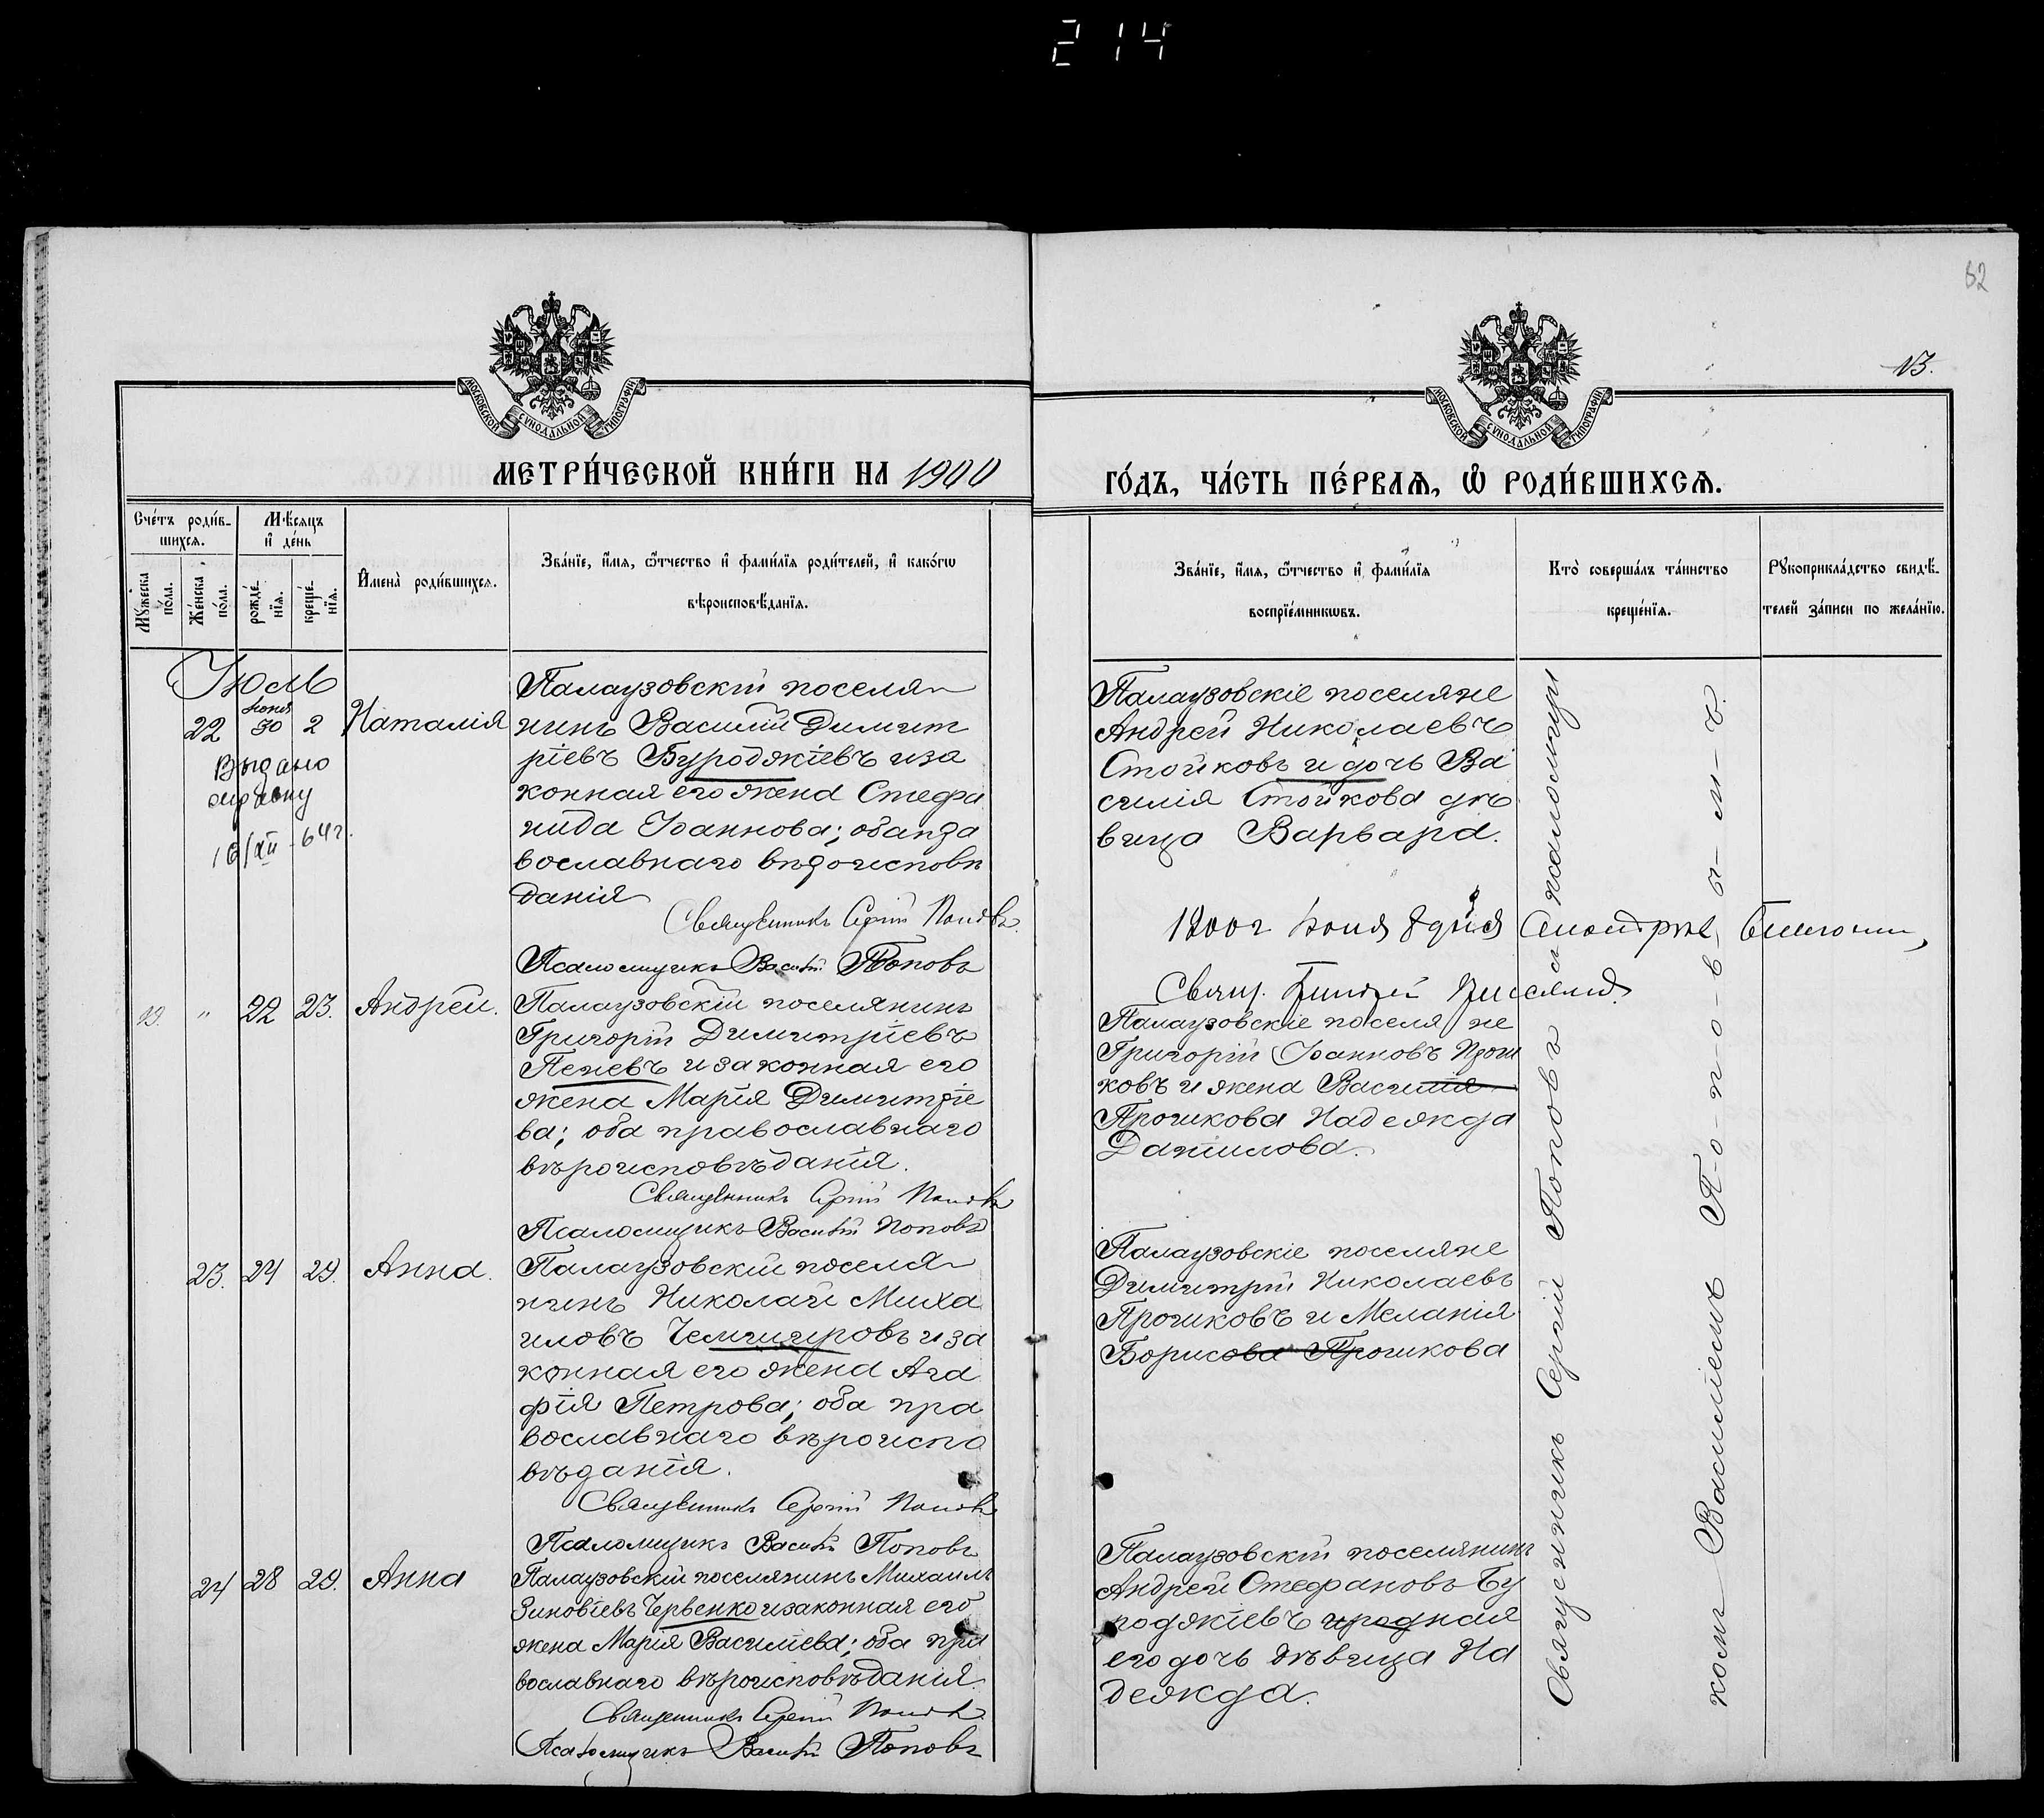 214
32
13.
МОСКОВСКОЙ СѴНОДАЛЬНОЙ ТИПОГРАФІИ
МОСКОВСКОЙ СѴНОДАЛЬНОЙ ТИПОГРАФІИ
МЕТРИ́ЧЕСКОЙ КНИ́ГИ НА 1900
ГО́ДЪ, ЧА́СТЬ ПЕ́РВАѦ, Ѡ РОДИ́ВШИХСѦ.
Сче́тъ роди́в-
шихсѧ.
Мѣ́сѧцъ
и де́нь
Мꙋ́жеска
по́ла.
Же́нска
по́ла.
рожде́-
нїѧ.
креще́-
нїѧ.
Имена̀ роди́вшихсѧ.
Зва́нїе, и́мѧ, ѻ҆́тчество и фами́лїѧ роди́телей, и како́гѡ
вѣроисповѣ́данїѧ.
Зва́нїе, и́мѧ, ѻ҆́тчество и фами́лїѧ
воспрїе́мникѡвъ.
Кто̀ соверша́лъ та́инство
креще́нїѧ.
Рꙋкоприкла́дство свидѣ́-
телей за́писи по жела́нїю.
Июль
июня
22 30 2 Наталія
Выдано
справку
16/XII - 64 г.
Палаузовскій поселя
нинъ Василій Димит
ріевъ Буроджіевъ и за
конная его жена Стефа
нида Іоаннова; оба пра
вославнаго вѣроисповѣ
данія
Священникъ Сергій Поповъ
Псаломщикъ Василій Поповъ
Палаузовскіе поселяне
Андрей Николаевъ
Стойковъ и дочь Ва
силія Стойкова дѣ
вица Варвара.
Свящ.
19. " 22 23. Андрей.
Палаузовскій поселянинъ
Григорій Димитріевъ
Пеневъ и законная его
жена Марія Димитріе
ва; оба православнаго
вѣроисповѣданія.
Священникъ Сергій Поповъ
Псаломщикъ Василій Поповъ
Палаузовскіе поселяне
Григорій Іоанновъ Прош
ковъ и жена Василія
Прошкова Надежда
Данилова.
23. 24 29. Анна.
Палаузовскій поселя
нинъ Николай Миха
иловъ Чемшировъ и за
конная его жена Ага
фія Петрова; оба пра
вославнаго вѣроиспо
вѣданія.
Священникъ Сергій Поповъ
Псаломщикъ Василій Поповъ
Палаузовскіе поселяне
Димитрій Николаевъ
Прошковъ и Меланія
Борисова Прошкова
24 28 29. Анна
Палаузовскій поселянинъ Михаилъ
Зиновіевъ Червенко и законная его
жена Марія Василіева; оба пра
вославнаго вѣроисповѣданія.
Священникъ Сергій Поповъ
Псаломщикъ Василій Поповъ
Палаузовскій поселянинъ
Андрей Стефановъ Бу
роджіевъ и родная
его дочь дѣвица На
дежда.
Священникъ Сергій Поповъ съ псаломщи
комъ Василіемъ П-о-п-о-в-ы-м-ъ.